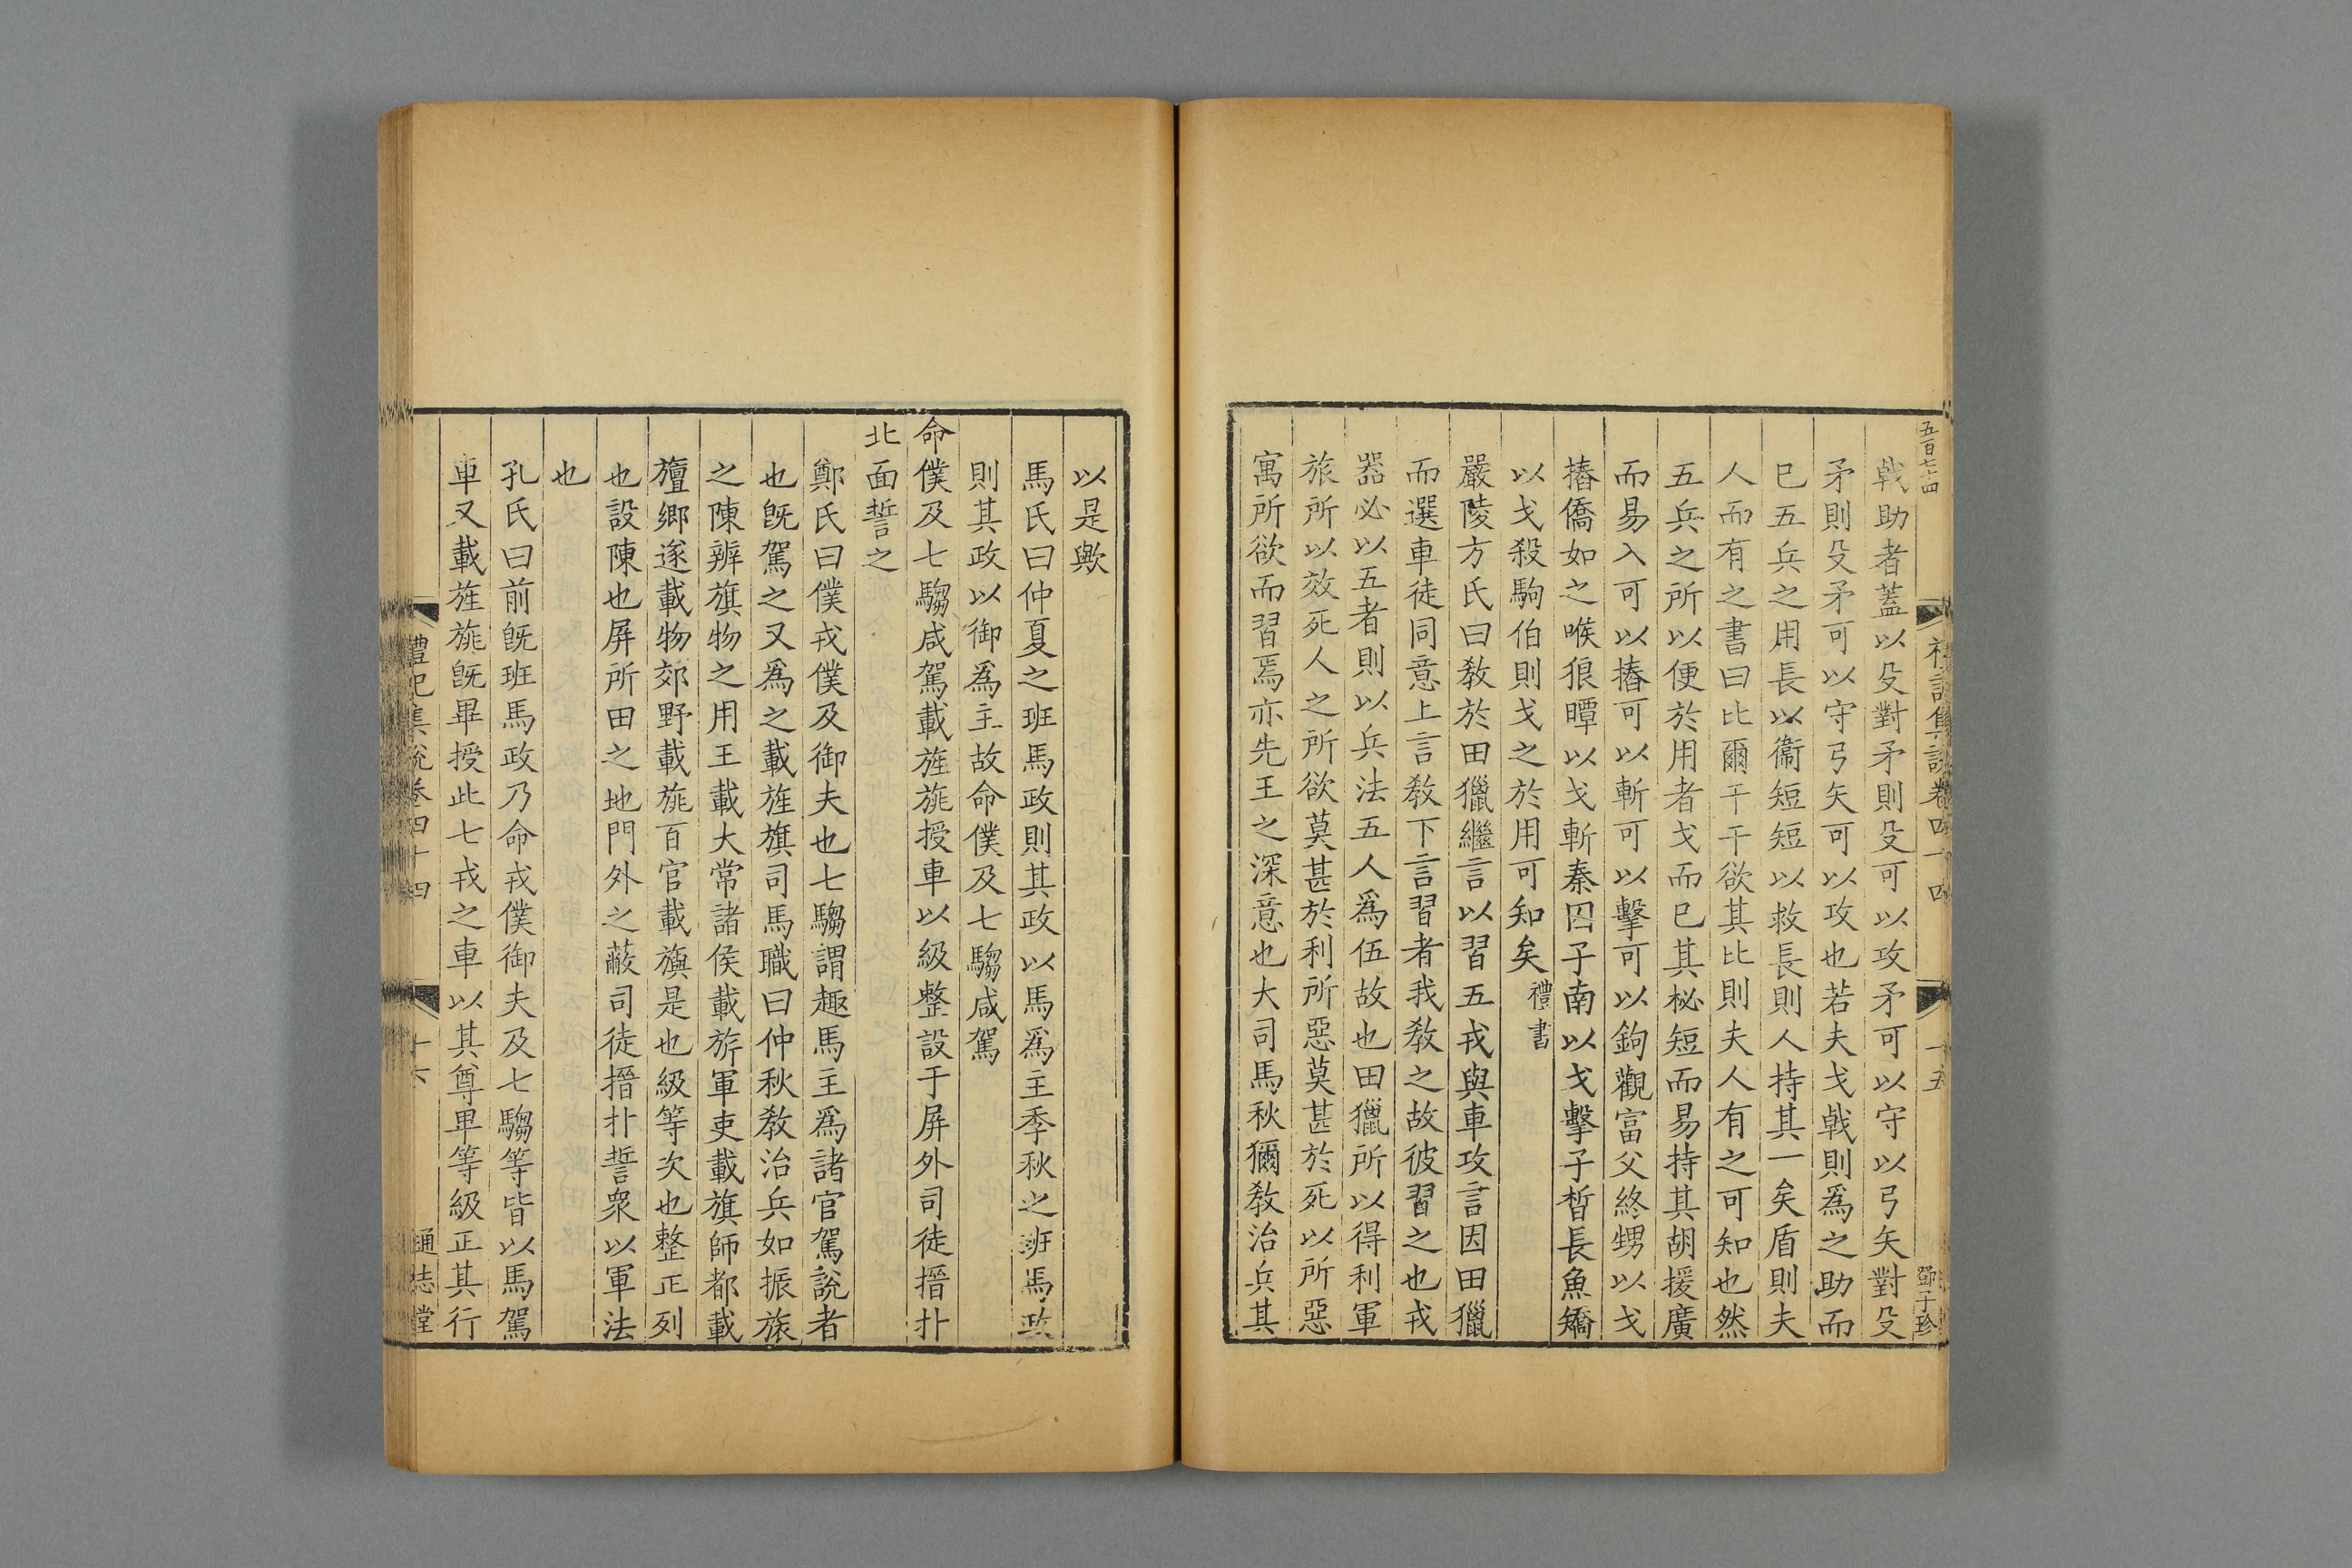 五百七十四
禮記集說卷四十四
十五
鄧子珍
戟助者蓋以殳對矛則殳可以攻矛可以守以弓矢對殳
矛則殳矛可以守弓矢可以攻也若夫戈戟則爲之助而
已五兵之用長以衞短短以救長則人持其一矣盾則夫
人而有之書曰比爾干干欲其比則夫人有之可知也然
五兵之所以便於用者戈而已其柲短而易持其胡援廣
而易入可以摏可以斬可以擊可以鉤觀富父終甥以戈
摏僑如之喉狼瞫以戈斬秦囚子南以戈擊子晳長魚矯
以戈殺駒伯則戈之於用可知矣禮書
嚴陵方氏曰敎於田獵繼言以習五戎與車攻言因田獵
而選車徒同意上言敎下言習者我敎之故彼習之也戎
器必以五者則以兵法五人爲伍故也田獵所以得利軍
旅所以效死人之所欲莫甚於利所惡莫甚於死以所惡
寓所欲而習焉亦先王之深意也大司馬秋獮敎治兵其
以是歟
馬氏曰仲夏之班馬政則其政以馬爲主季秋之班馬政
則其政以御爲主故命僕及七騶咸駕
命僕及七騶咸駕載旌旐授車以級整設于屏外司徒搢扑
北面誓之
鄭氏曰僕戎僕及御夫也七騶謂趣馬主爲諸官駕說者
也旣駕之又爲之載旌旗司馬職曰仲秋敎治兵如振旅
之陳辨旗物之用王載大常諸侯載旂軍吏載旗師都載
旜鄉遂載物郊野載旐百官載旟是也級等次也整正列
也設陳也屏所田之地門外之蔽司徒搢扑誓衆以軍法
也
孔氏曰前旣班馬政乃命戎僕御夫及七騶等皆以馬駕
車又載旌旐旣畢授此七戎之車以其尊卑等級正其行
禮記集說卷四十四
十六
通志堂